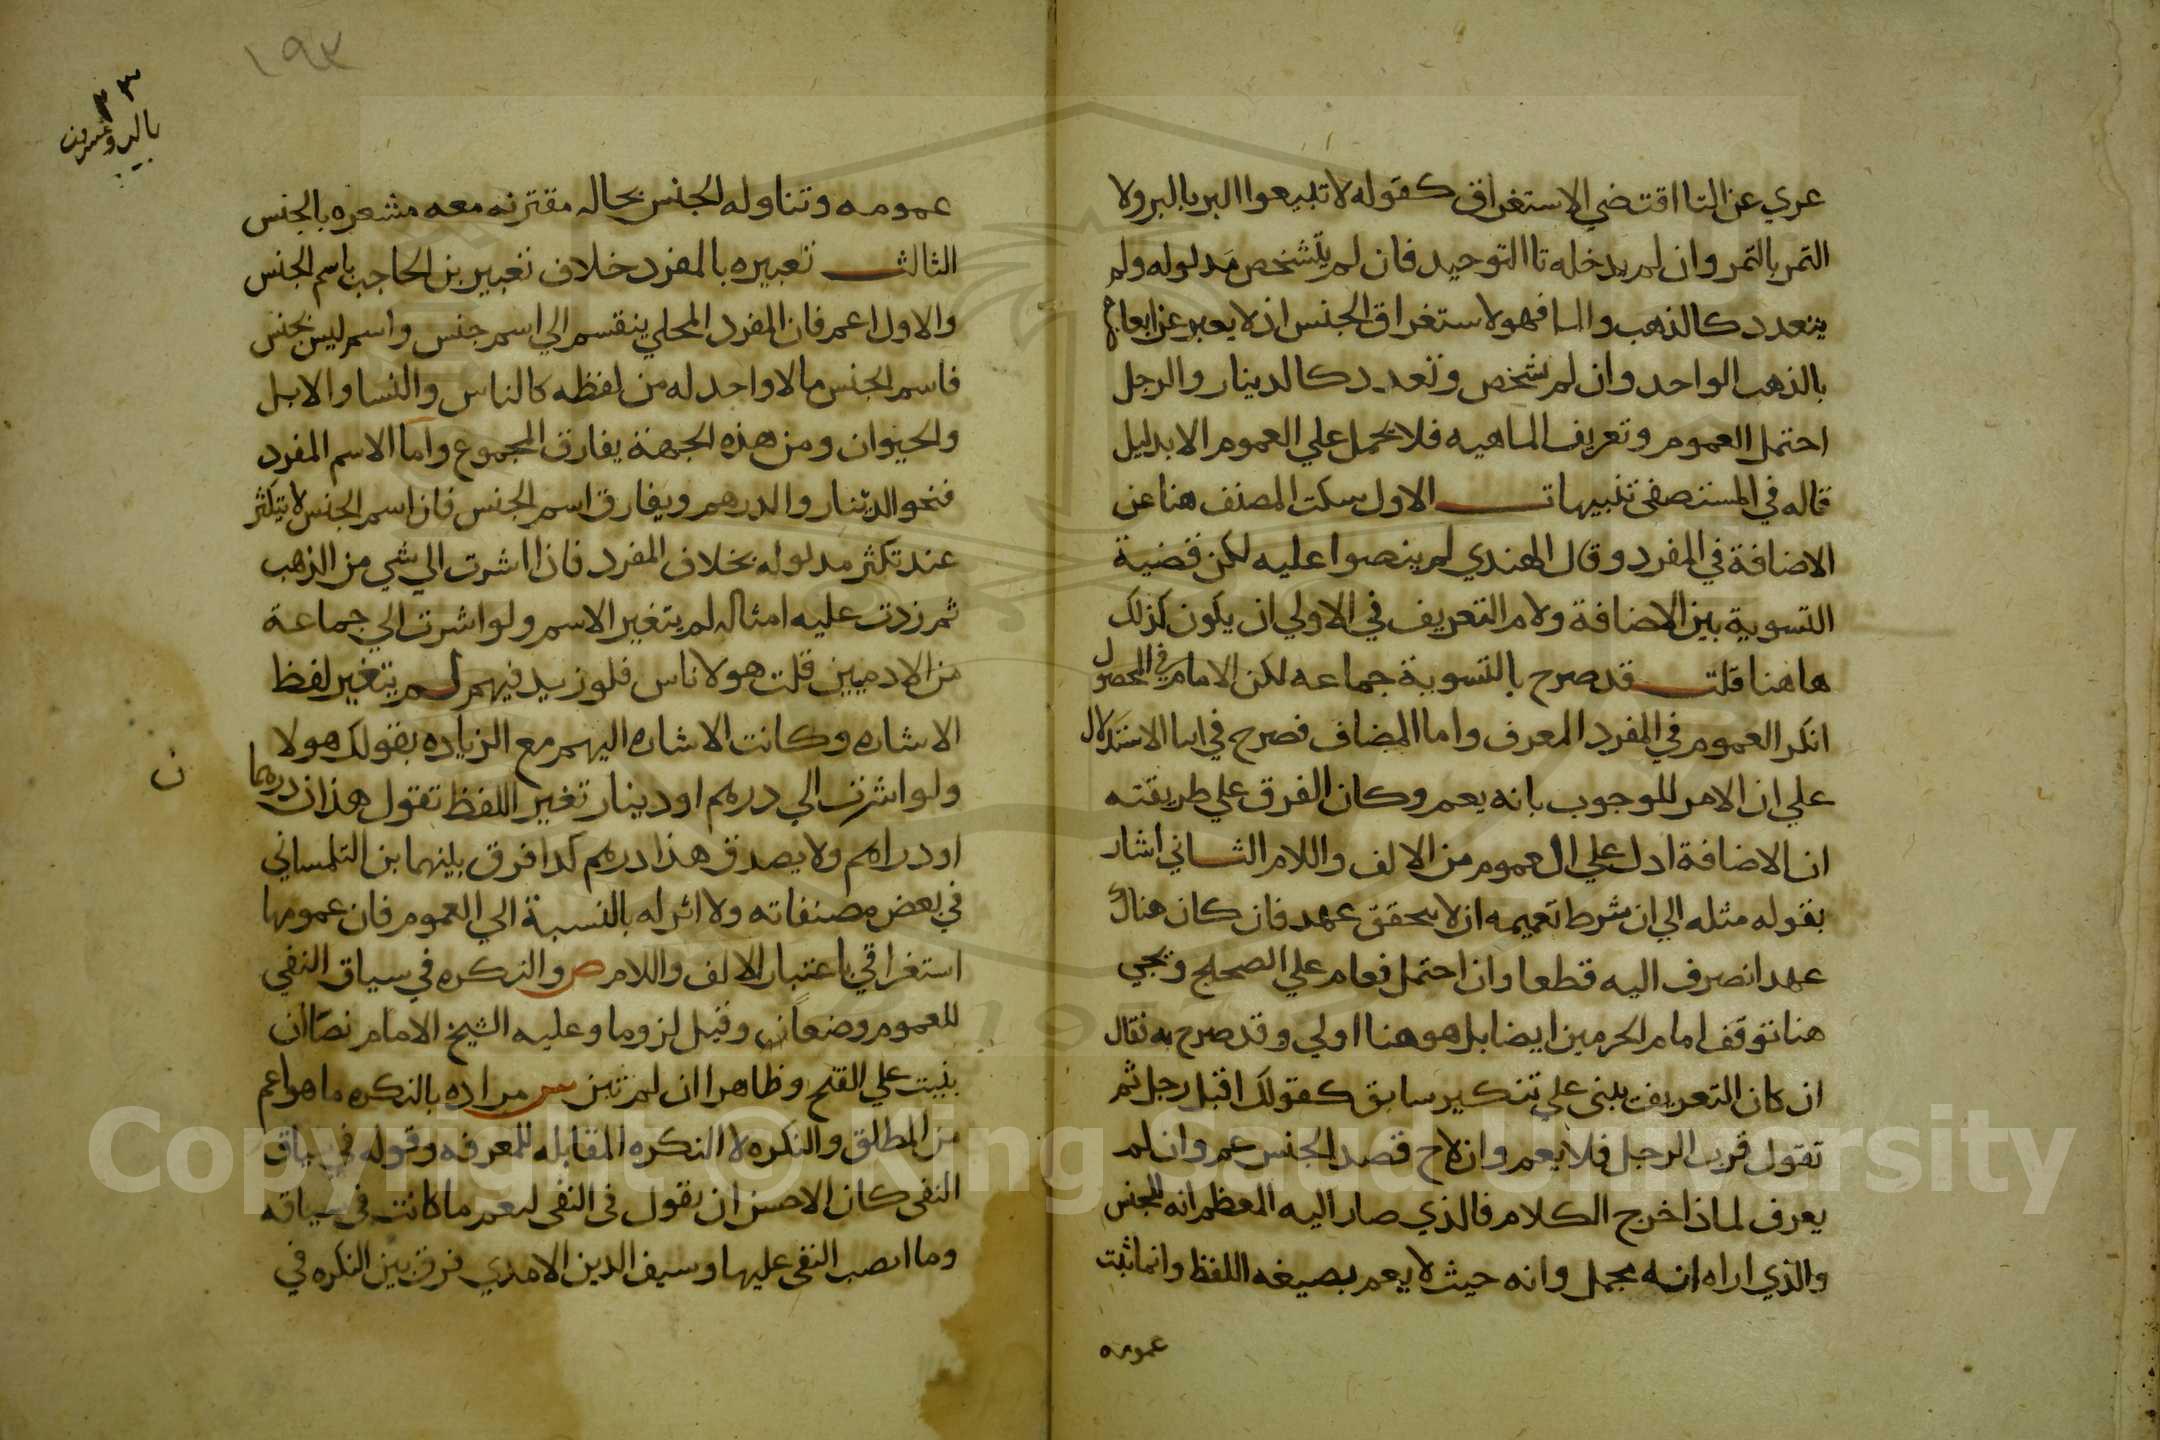 عري عن التا اقتضي الاستغراق كقوله لا تبيعوا البر بالبر ولا
التمر بالتمر وان لم يدخله تا التوحيد فان لم يتشخص مدلوله ولم
يتعدد كالذهب والما فهو لاستغراق الجنس اذ لا يعبر عن ابعاضه
بالذهب الواحد وان لم تشخص وتعدد كالدينار والرجل
احتمل العموم وتعريف الماهيه فلا يحمل علي العموم الا بدليل
قاله في المستصفي تنبيهات الاول سكت المصنف هنا عن
الاضافة في المفرد وقال الهندي لم ينصوا عليه لكن قضية
التسوية بين الاضافة ولام التعريف في الاولي ان يكون كذلك
هاهنا قلت قد صرح بالتسوية جماعه لكن الامام في المحصول
انكر العموم في المفرد المعرف واما المضاف فصرح في اسا الاستدلال
علي ان الامر للوجوب بانه يعم وكان الفرق علي طريقته
ان الاضافة ادل علي العموم من الالف واللام الثاني اشار
بقوله مثله الي ان شرط تعميمه ان لا يتحقق عهد فان كان هناك
عهد انصرف اليه قطعا وان احتمل فعام علي الصحيح ويجي
هنا توقف امام الحرمين ايضا بل هو هنا اولي وقد صرح به فقال
ان كان التعريف يبني علي تنكير سابق كقولك اقبل رجل ثم
تقول قرب الرجل فلا يعم وان لاح قصد الجنس عم وان لم
يعرف لماذا خرج الكلام فالذي صار اليه المعظم انه للجنس
والذي اراه انه مجمل وانه حيث لا يعم بصيغه اللفظ وانما ثبت
عمومه
١٩٣
٢٣
عمومه وتناوله لجنس بحاله مقترنه معه مشعره بالجنس
الثالث تعبيره بالمفرد خلاف تعبير بن الحاجب باسم الجنس
والاول اعم فان المفرد المحلي ينقسم الي اسم جنس واسم ليس بجنس
فاسم الجنس ما لا واحد له من لفظه كالناس والنسا والابل
والحيوان ومن هذه الجهة يفارق المجموع واما الاسم المفرد
فنحو الدينار والدرهم ويفارق اسم الجنس فان اسم الجنس لا يتكثر
عند تكثر مدلوله بخلاف المفرد فاذا اشرت الي شي من الذهب
ثم زدت عليه امثاله لم يتغير الاسم ولو اشرت الي جماعة
من الادميين قلت هولا ناس فلو زيد فيهم لم يتغير لفظ
الاشاره وكانت الاشاره اليهم مع الزياده بقولك هولا
ولو اشرت الي درهم او دينار تغير اللفظ تقول هذان درهما
ن
او دراهم ولا يصدق هذا درهم كذا فرق بينهما بن التلمساني
في بعض مصنفاته ولا اثر له بالنسبة الي العموم فان عمومها
استغراقي باعتبار الالف واللام ص والنكره في سياق النفي
للعموم وضعا وقيل لزوما وعليه الشيخ الامام نصا ان
بنيت علي الفتح وظاهرا ان لم تبن ش مراده بالنكره ما هو اعم
من المطلق والنكره لا النكره المقابله للمعرفه وقوله في سياق
النفي كان الاحسن ان يقول في النفي ليعم ما كانت في سياقه
وما انصب النفي عليها وسيف الدين الامدي فرق بين النكره في
Copyright © King Saud University
1957